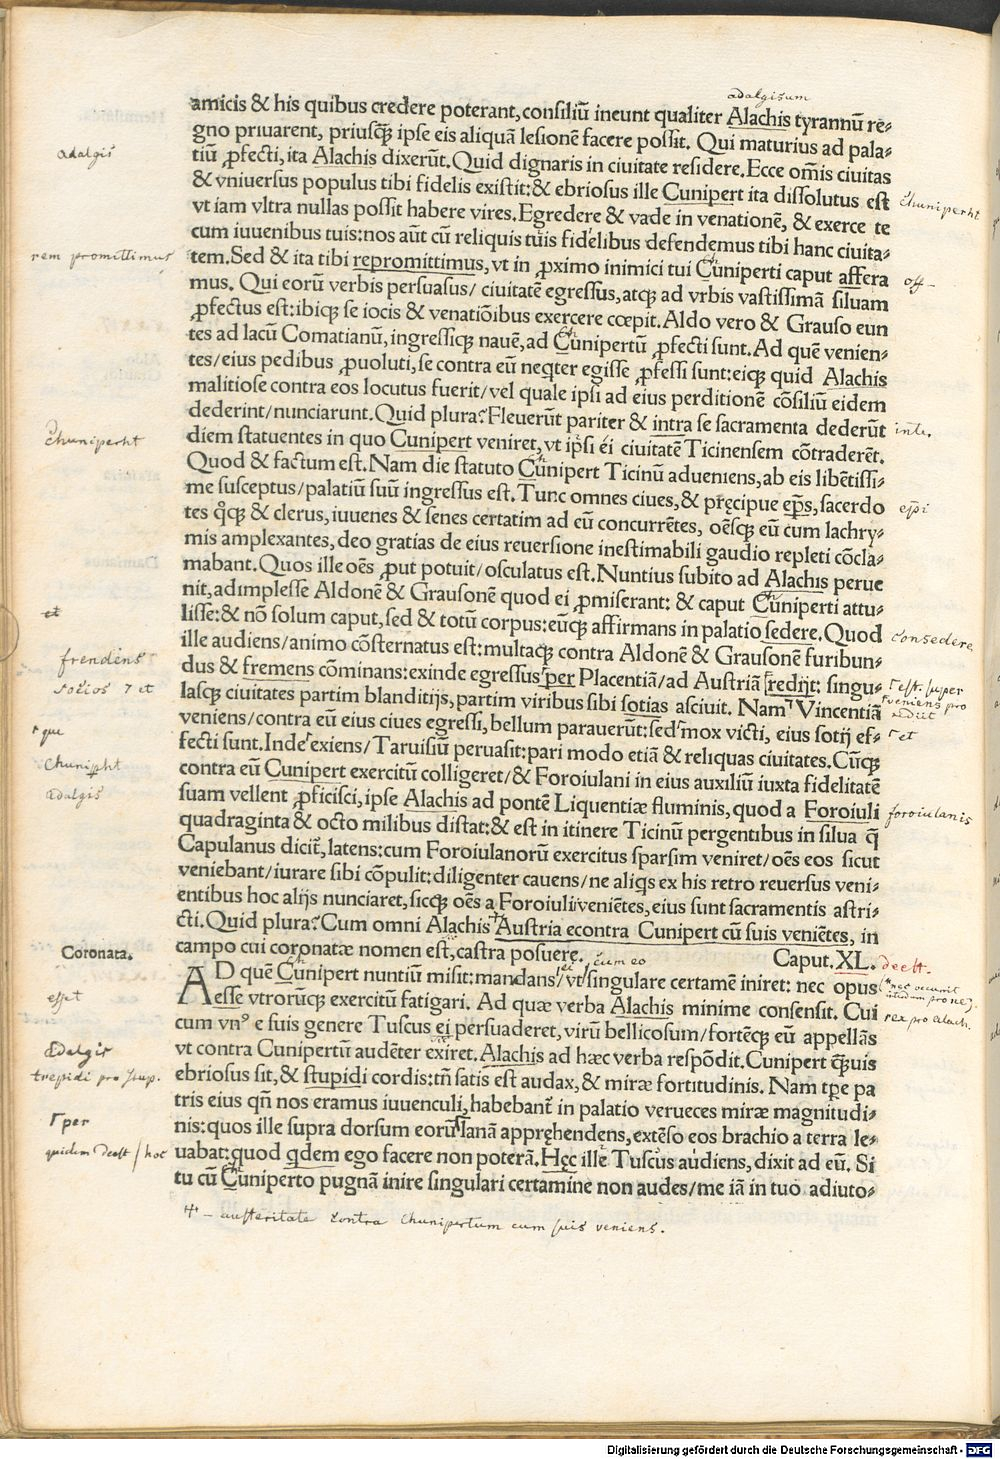 adalgisum
amicis & his quibus credere poterant, consiliū ineunt qualiter Alachis tyrannū re-
gno priuarent, priusq̄ ipse eis aliquā lesionē facere possit. Qui maturius ad pala-
adalgis
tiū ꝓfecti, ita Alachis dixerūt. Quid dignaris in ciuitate residere. Ecce om̄is ciuitas
& vniuersus populus tibi fidelis existit: & ebriosus ille Cunipert ita dissolutus est
chuniperht
vt iam vltra nullas possit habere vires. Egredere & vade in venationē, & exerce te
cum iuuenibus tuis: nos aūt cū reliquis tuis fidelibus defendemus tibi hanc ciuita-
rem promittimus
tem. Sed & ita tibi repromittimus, vt in ꝓximo inimici tui Cuniperti caput affera
off-
mus. Qui eorū verbis persuasus/ ciuitatē egressus, atq̄ ad vrbis vastissimā siluam
ꝓfectus est: ibiq̄ se iocis & venatiōibus exercere cœpit. Aldo vero & Grauso eun
tes ad lacū Comatianū, ingressiq̄ nauē, ad Cunipertū ꝓfecti sunt. Ad quē venien-
tes/ eius pedibus ꝓuoluti, se contra eū neq̄ter egisse ꝓfessi sunt: eiq̄ quid Alachis
malitiose contra eos locutus fuerit/ vel quale ipsi ad eius perditionē cōsiliū eidem
dederint/ nunciarunt. Quid plura? Fleuerūt pariter & intra se sacramenta dederūt
inte.
chuniperht
diem statuentes in quo Cunipert veniret, vt ipsi ei ciuitatē Ticinensem cōtraderēt.
Quod & factum est. Nam die statuto Cunipert Ticinū adueniens, ab eis libētissi-
me susceptus/ palatiū suū ingressus est. Tunc omnes ciues, & pręcipue ep̄s, sacerdo
ep̄i
tes q̊q̄ & clerus, iuuenes & senes certatim ad eū concurrētes, oēsq̄ eū cum lachry-
mis amplexantes, deo gratias de eius reuersione inestimabili gaudio repleti cōcla-
mabant. Quos ille oēs ꝓut potuit/ osculatus est. Nuntius subito ad Alachis perue
nit, adimplesse Aldonē & Grausonē quod ei ꝓmiserant: & caput Cuniperti attu-
et
lisse: & nō solum caput, sed & totū corpus: eūq̄ affirmans in palatio sedere. Quod
consedere
ille audiens/ animo cōsternatus est: multaq̄ contra Aldonē & Grausonē furibun-
frendens
dus & fremens cōminans: exinde egressus per Placentiā/ ad Austriā redijt: singu-
est. super
socios 7 et
lasq̄ ciuitates partim blanditijs, partim viribus sibi sotias asciuit. Nam Vincentiā
veniens pro
rediit
veniens/ contra eū eius ciues egressi, bellum parauerūt: sed mox victi, eius sotij ef-
et
que
fecti sunt. Inde exiens/ Taruisiū peruasit: pari modo etiā & reliquas ciuitates. Cūq̄
Chunipht
contra eū Cunipert exercitū colligeret/ & Foroiulani in eius auxiliū iuxta fidelitatē
adalgis
suam vellent ꝓficisci, ipse Alachis ad pontē Liquentiæ fluminis, quod a Foroiuli
foroiulanis
quadraginta & octo milibus distat: & est in itinere Ticinū pergentibus in silua q̄
Capulanus dicit̄, latens: cum Foroiulanorū exercitus sparsim veniret/ oēs eos sicut
veniebant/ iurare sibi cōpulit: diligenter cauens/ ne aliq̄s ex his retro reuersus veni-
entibus hoc alijs nunciaret, sicq̄ oēs a Foroiuli veniētes, eius sunt sacramentis astri-
cti. Quid plura? Cum omni Alachis Austria econtra Cunipert cū suis veniētes, in
Coronata.
campo cui coronatæ nomen est, castra posuere.
cum eo
Caput. XL.
deest.
AD quē Cunipert nuntiū misit: mandans/ vt singulare certamē iniret: nec opus
esset
esse vtrorūq̄ exercitū fatigari. Ad quæ verba Alachis minime consensit. Cui
rex pro alach.
cum vnꝰ e suis genere Tuscus ei persuaderet, virū bellicosum/ fortēq̄ eū appellās
Adalgis
vt contra Cunipertū audēter exiret. Alachis ad hæc verba respōdit. Cunipert q̄uis
trepidi pro stup.
ebriosus sit, & stupidi cordis: tn̄ satis est audax, & miræ fortitudinis. Nam tp̄e pa
tris eius qn̄ nos eramus iuuenculi, habebant̄ in palatio verueces miræ magnitudi-
per
nis: quos ille supra dorsum eorū lanā appręhendens, extēso eos brachio a terra le-
quidem deest / hoc
uabat: quod qdem ego facere non poterā. Hęc ille Tuscus audiens, dixit ad eū. Si
tu cū Cuniperto pugnā inire singulari certamine non audes/ me iā in tuo adiuto-
austeritate contra chunipertum cum suis veniens.
Digitalisierung gefördert durch die Deutsche Forschungsgemeinschaft - DFG